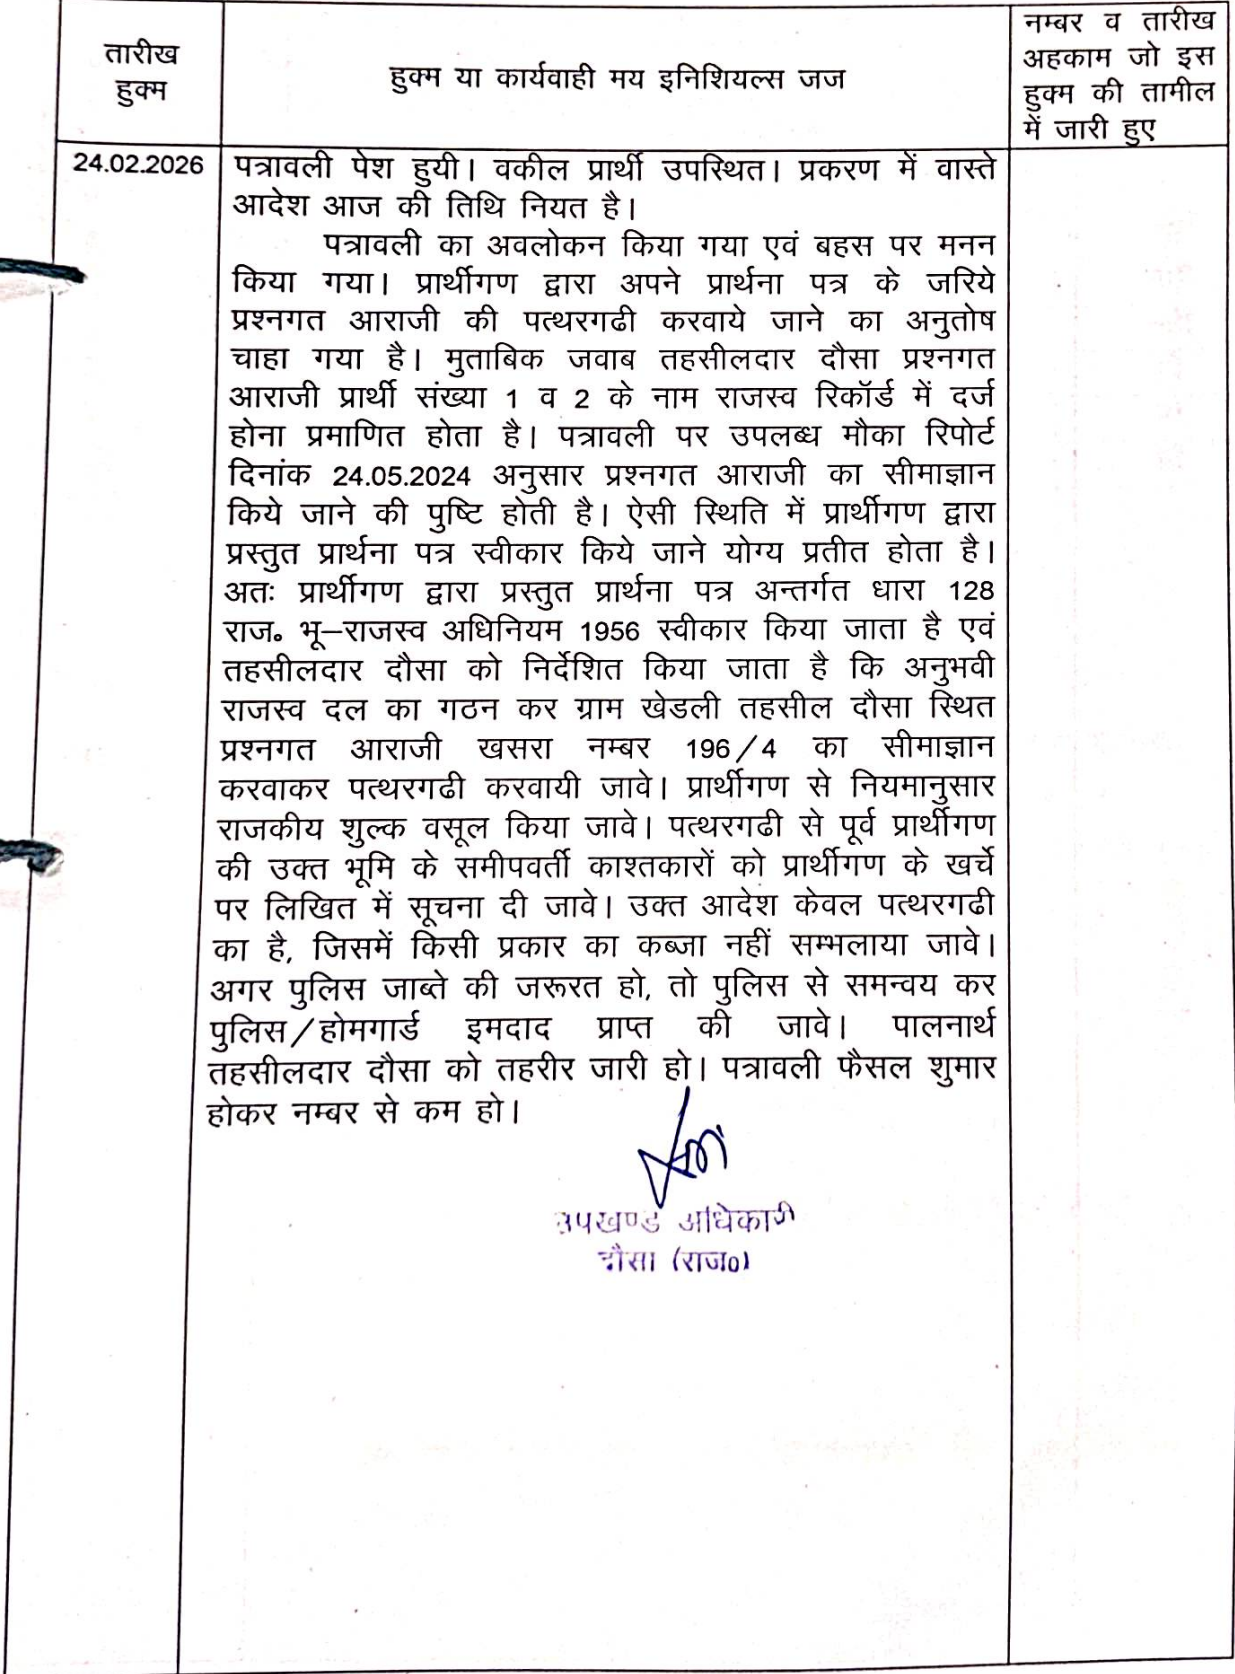 तारीख
हुक्म
हुक्म या कार्यवाही मय इनिशियल्स जज
नम्बर व तारीख
अहकाम जो इस
हुक्म की तामील
में जारी हुए
24.02.2026
पत्रावली पेश हुयी। वकील प्रार्थी उपस्थित। प्रकरण में वास्ते
आदेश आज की तिथि नियत है।
पत्रावली का अवलोकन किया गया एवं बहस पर मनन
किया गया। प्रार्थीगण द्वारा अपने प्रार्थना पत्र के जरिये
प्रश्नगत आराजी की पत्थरगढी करवाये जाने का अनुतोष
चाहा गया है। मुताबिक जवाब तहसीलदार दौसा प्रश्नगत
आराजी प्रार्थी संख्या 1 व 2 के नाम राजस्व रिकॉर्ड में दर्ज
होना प्रमाणित होता है। पत्रावली पर उपलब्ध मौका रिपोर्ट
दिनांक 24.05.2024 अनुसार प्रश्नगत आराजी का सीमाज्ञान
किये जाने की पुष्टि होती है। ऐसी स्थिति में प्रार्थीगण द्वारा
प्रस्तुत प्रार्थना पत्र स्वीकार किये जाने योग्य प्रतीत होता है।
अतः प्रार्थीगण द्वारा प्रस्तुत प्रार्थना पत्र अन्तर्गत धारा 128
राज॰ भू–राजस्व अधिनियम 1956 स्वीकार किया जाता है एवं
तहसीलदार दौसा को निर्देशित किया जाता है कि अनुभवी
राजस्व दल का गठन कर ग्राम खेडली तहसील दौसा स्थित
प्रश्नगत आराजी खसरा नम्बर 196/4 का सीमाज्ञान
करवाकर पत्थरगढी करवायी जावे। प्रार्थीगण से नियमानुसार
राजकीय शुल्क वसूल किया जावे। पत्थरगढी से पूर्व प्रार्थीगण
की उक्त भूमि के समीपवर्ती काश्तकारों को प्रार्थीगण के खर्चे
पर लिखित में सूचना दी जावे। उक्त आदेश केवल पत्थरगढी
का है, जिसमें किसी प्रकार का कब्जा नहीं सम्भलाया जावे।
अगर पुलिस जाब्ते की जरूरत हो, तो पुलिस से समन्वय कर
पुलिस/होमगार्ड इमदाद प्राप्त की जावे। पालनार्थ
तहसीलदार दौसा को तहरीर जारी हो। पत्रावली फैसल शुमार
होकर नम्बर से कम हो।
उपखण्ड अधिकारी
दौसा (राज0)